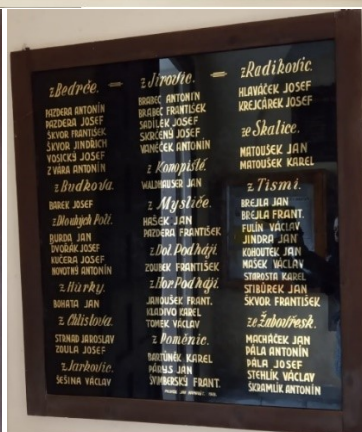 z Bedrče.
PAZDERA ANTONÍN
PAZDERA JOSEF
ŠKVOR FRANTIŠEK
ŠKVOR JINDŘICH
VOSICKÝ JOSEF
ZVÁRA ANTONÍN
z Budkova.
BAREK JOSEF
z Dlouhých Polí.
BURDA JAN
DVOŘÁK JOSEF
KUČERA JOSEF
NOVOTNÝ ANTONÍN
z Hůrky.
BOHATA JAN
z Chlístova.
STRNAD JAROSLAV
ZOULA JOSEF
z Jarkovic.
ŠEŠINA VÁCLAV
z Jírovic.
BRABEC ANTONÍN
BRABEC FRANTIŠEK
SADÍLEK JOSEF
SKRČENÝ JOSEF
VANĚČEK ANTONÍN
z Konopiště.
WALDHAUSER JAN
z Mysliče.
HAŠEK JAN
PAZDERA FRANTIŠEK
z Dol. Podhájí.
ZOUBEK FRANTIŠEK
z Hor. Podhájí.
JANOUŠEK FRANT.
KLADIVO KAREL
TOMEK VÁCLAV
z Poměnic.
BARTŮNĚK KAREL
PARYS JAN
ŠVIMBERSKÝ FRANT.
z Radíkovic.
HLAVÁČEK JOSEF
KREJCÁREK JOSEF
ze Skalice.
MATOUŠEK JAN
MATOUŠEK KAREL
z Tismi.
BREJLA JAN
BREJLA FRANT.
FULÍN VÁCLAV
JINDRA JAN
KOHOUTEK JAN
MAŠEK VÁCLAV
STAROSTA KAREL
STIBŮREK JAN
ŠKVOR FRANTIŠEK
ze Žabovřesk.
MACHÁČEK JAN
PÁLA ANTONÍN
PÁLA JOSEF
STEHLÍK VÁCLAV
ŠKRAMLÍK ANTONÍN